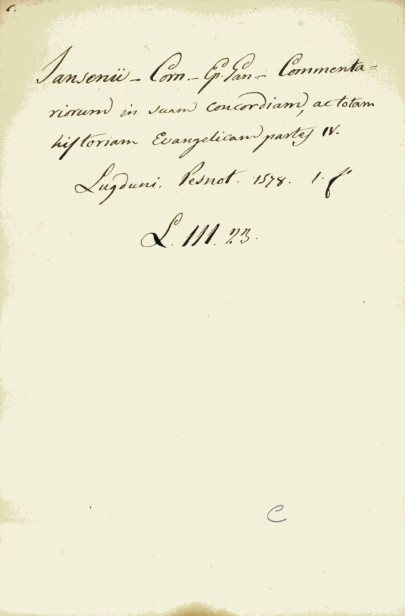 Jansenii - Corn - Ep. Gan - Commenta=
riorum in suam concordiam, ac totam
historiam Evangelicam partes IV.
Lugduni. Pesnot. 1578. 1. f
L. III. 23.
C